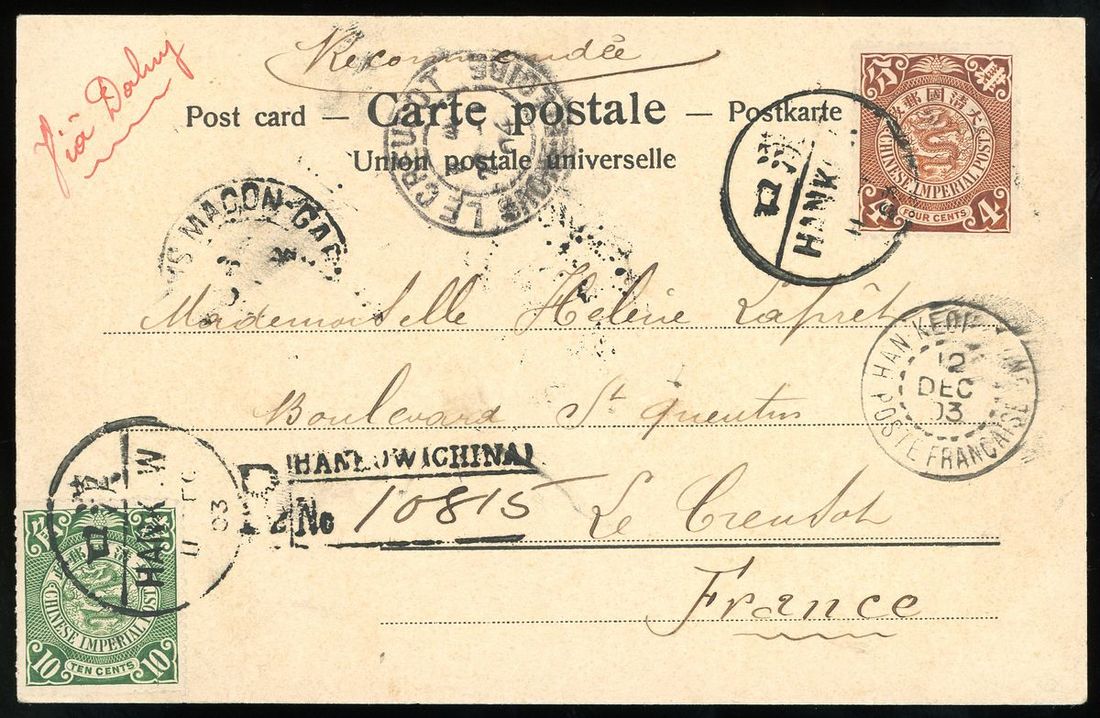 Recommandée
Viâ Dalny
Post card — Carte postale — Postkarte
Union postale universelle
大清國郵政
肆
CHINESE IMPERIAL POST
4 FOUR CENTS 4
漢口
HANK
11
LE CREUSOT
04
MACON
Mademoiselle Hélène Laprêt
HAN KEOU CHINE
12
DEC
03
POSTE FRANÇAISE
Boulevard St Quentin
HANKOW (CHINA)
R No 10815
Le Creusot
France
漢口
HANK W
11 DEC
03
CHINESE IMPERIAL POST
10 TEN CENTS 10